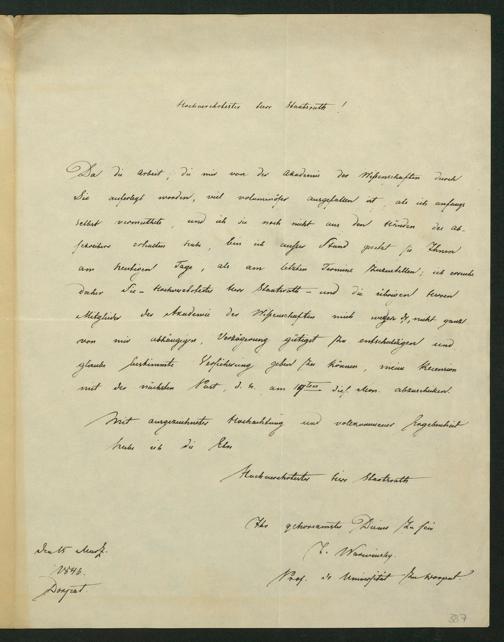 Hochverehrtester Herr Staatsrath!
Da die Arbeit, die mir von der Akademie der Wissenschaften durch
Sie auferlegt worden, viel voluminöser ausgefallen ist, als ich anfangs
selbst vermuthete, und ich sie noch nicht aus den Händen des Ab-
schreibers erhalten habe, bin ich außer Stand gesetzt sie Ihnen
am heutigen Tage, als am letzten Termine zuzustellen; ich ersuche
daher Sie – Hochverehrtester Herr Staatsrath – und die übrigen Herren
Mitglieder der Akademie der Wissenschaften mich wegen der, nicht ganz
von mir abhängigen, Verzögerung gütigst zu entschuldigen und
glaube bestimmte Versicherung geben zu können, meine Recension
mit der nächsten Post, d. h. am dies. Mon. abzuschicken.
Mit ausgezeichneter Hochachtung und vollkommener Ergebenheit
habe ich die Ehre
Hochverehrtester Herr Staatsrath
Ihr gehorsamster Diener zu sein
Prof. der Universität zu Dorpat
den 15 März.
1846.
Dorpat.
387